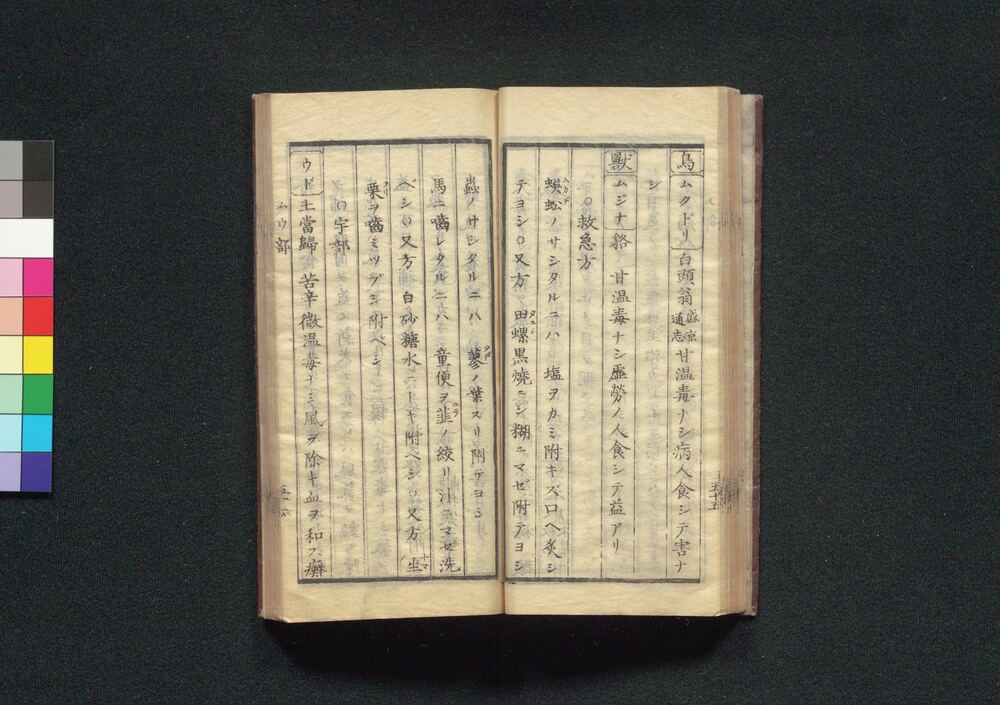 鳥 ムクドリ 白頭翁 盛京通志 甘温毒ナシ病人食シテ害ナ
シ
獣 ムジナ 貉 甘温毒ナシ虚労ノ人食シテ益アリ
○救急方
蜈蚣ムカデノサシタルニハ 塩ヲカミ附キズ口ヘ炙シ
テヨシ○又方 田螺タニシ黒焼ニシ糊ニマゼ附テヨシ
五十五
蟲ノサシタルニハ 蓼タデノ葉スリ附テヨシ
馬ニ噛レタルニハ 童便ヲ韮ニラノ絞リ汁ニマゼ洗
ベシ○又方 白砂糖水ニトキ附ヘシ○又方 生ナマ
栗クリヲ噛ミツブシ附ベシ
○宇部
ウド 土當歸 苦辛微温毒ナシ風ヲ除キ血ヲ和ス癬
ムウ部